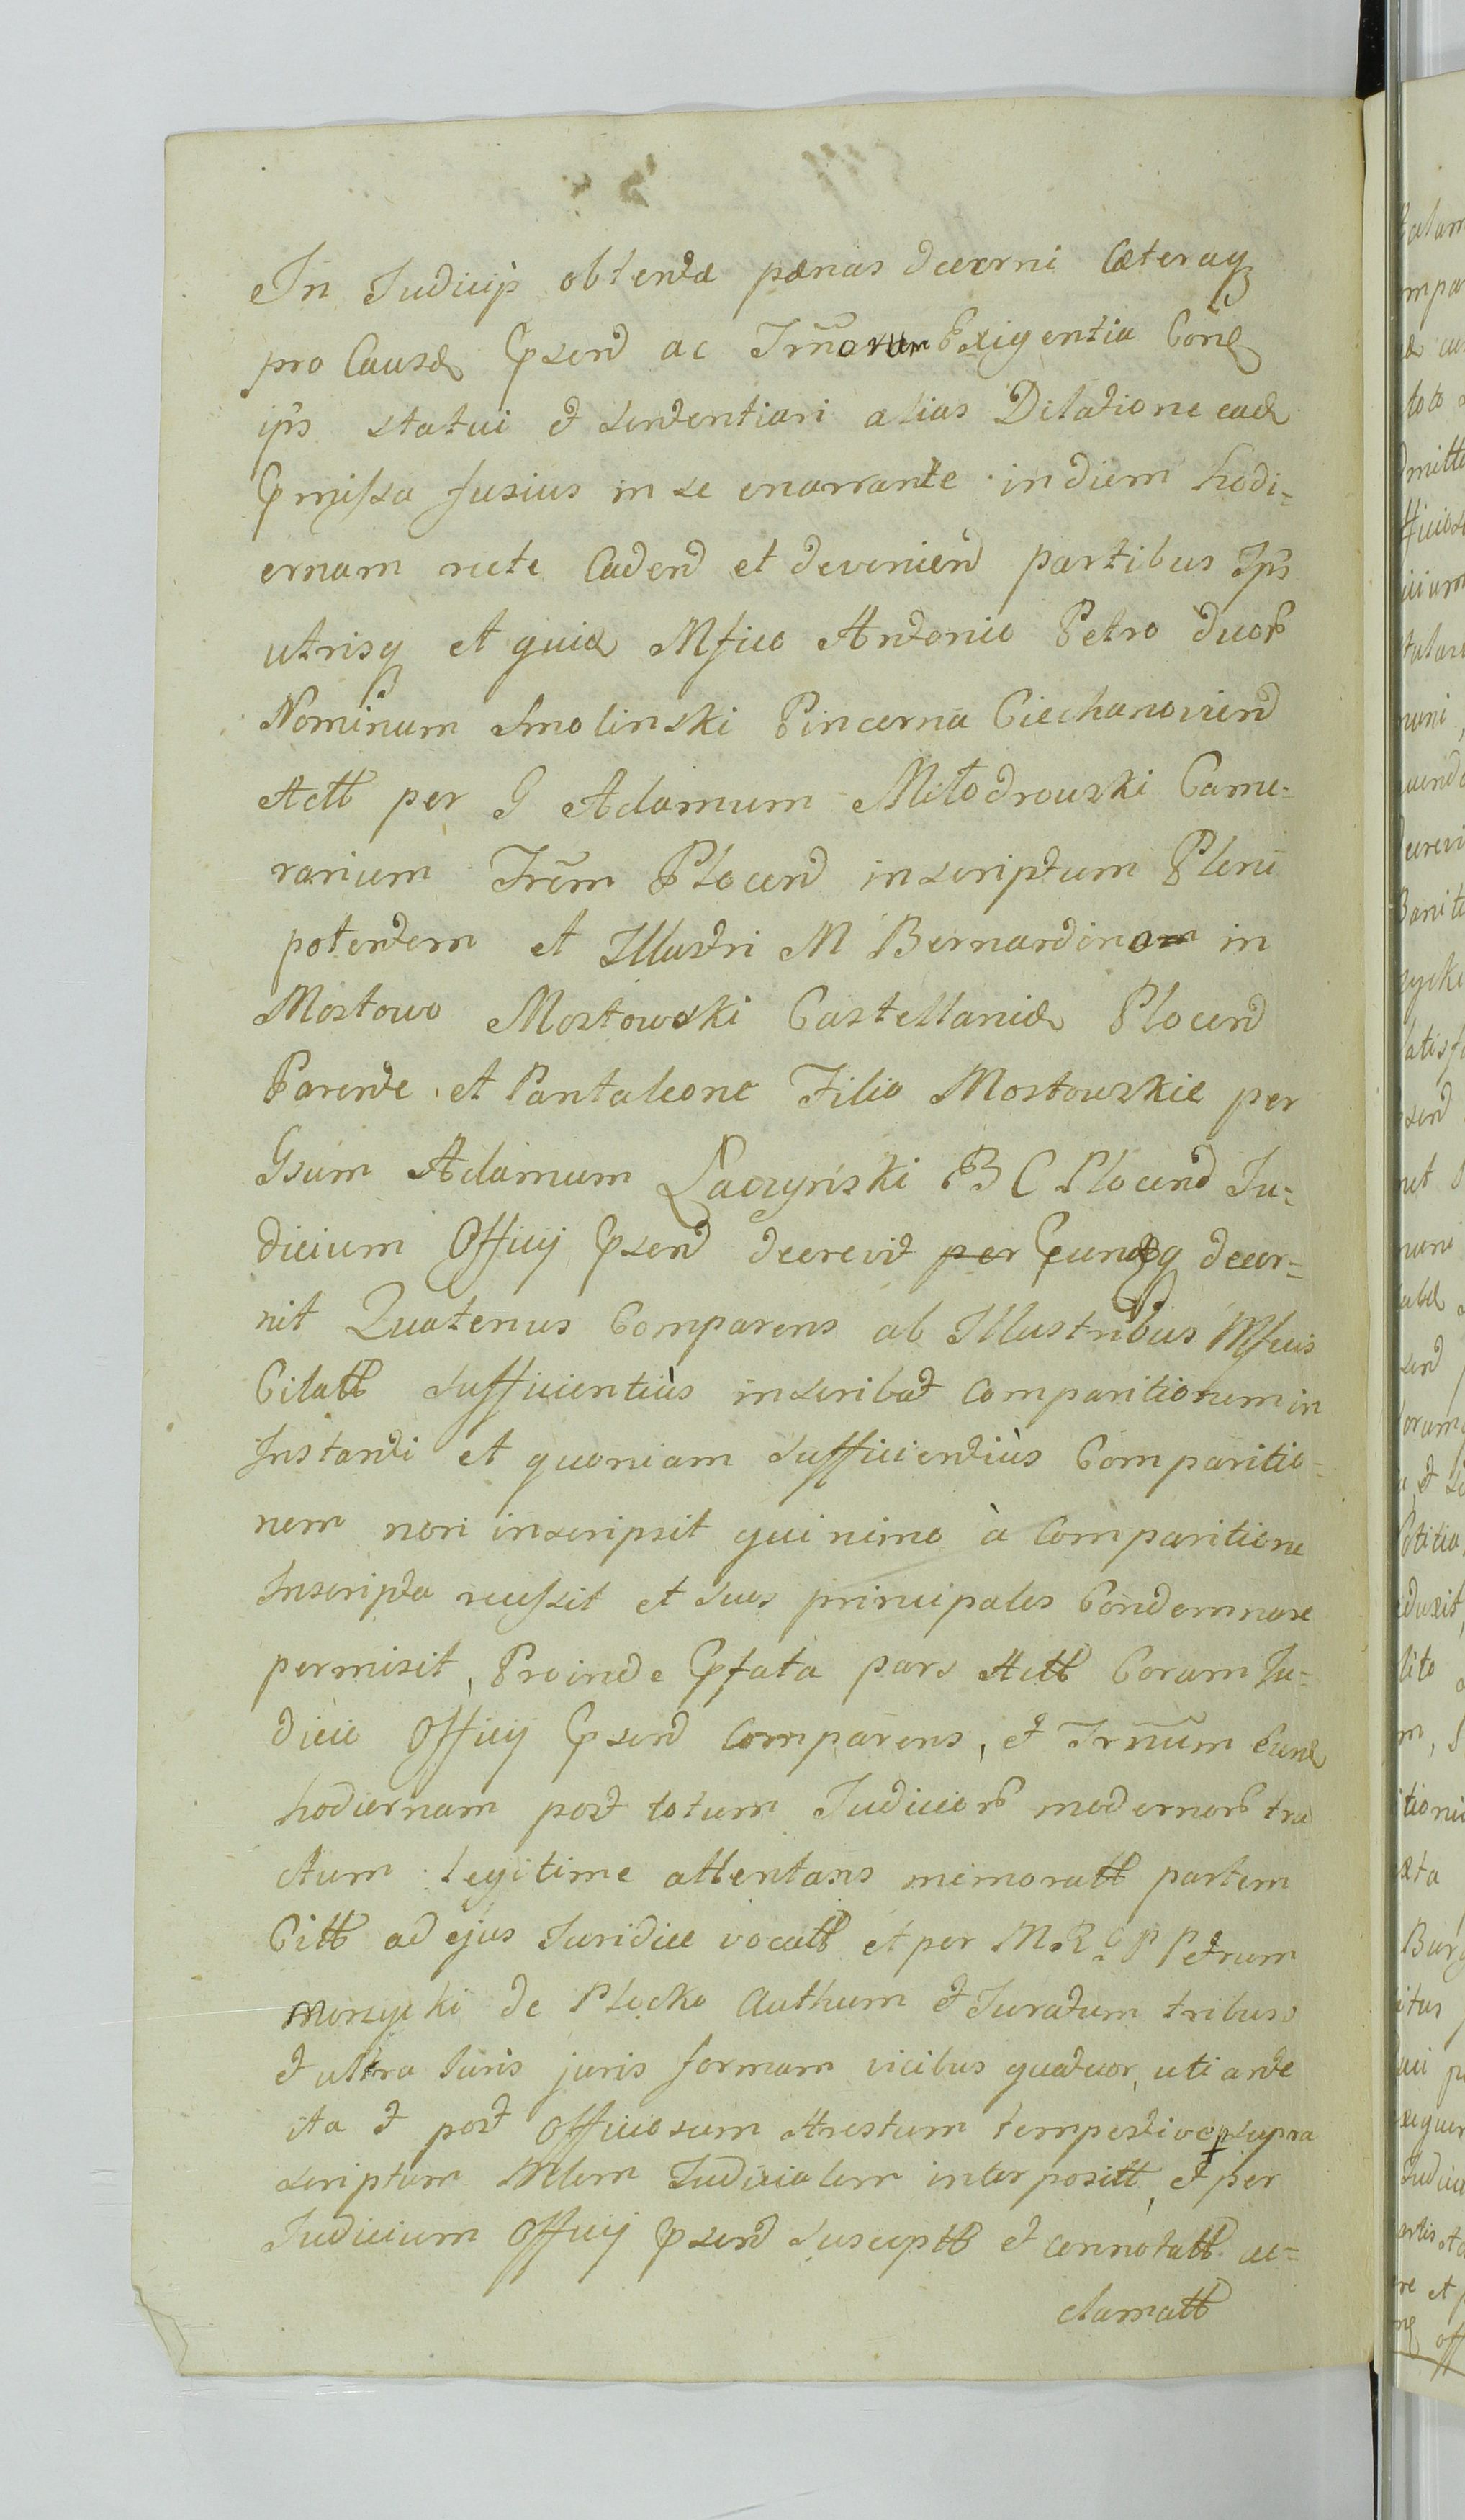 In Judicijs obtentæ pænas decerni Cæteraq
pro Causæ Psend ac Trnorum Exigentia Cone
ips statui et Sententiari alias Dilatione eade
Pmissa fusius in se enarrante in diem hodi=
ernam recte Cadend et deveniend partibus Ips
utrisq et quia Mfico Antonio Petro duor
Nominum Smolinski Pincerna Ciechanoviend
Actt per G Adamum Miłodrowski Came-
rarium Trem Plocend inscriptum Pleni
potentem et Illustri M Bernardino in
Mostowo Mostowski Castellanide Plocend
Parente et Pantaleone Filio Mostowskie per
Gsum Adamum Łaczyński B C Plocend Ju=
dicium Officij Psend decrevit per Eundq decer=
nit Quatenus Comparens ab Illustribus Mfcis
Citatt Sufficientiùs inscribat Comparitionem in
Instanti et quoniam Sufficientiùs Comparitio=
nem non inscripsit quinimo à Comparitione
Inscripta recessit et suos principales Condemnare
permisit, Proinde Pfata pars Actt Coram Ju=
dicio Officij Psend Comparens, et Trnum Eund
hodiernam post totum Judicior modernor tra
ctum legitime attentans memoratt partem
Citt ad ejus Juridice vocatt et per M R P Petrum
Morzycki de Plocko Authum et Juratum tribus
et ultra Juris juris formam vicibus quatuor, uti ante
ita et post Officiosum Arestum tempestive p supra
scriptum Mtem Judicialem interpositt, et per
Judicium Officij Psend Susceptt et connotatt ac=
clamatt